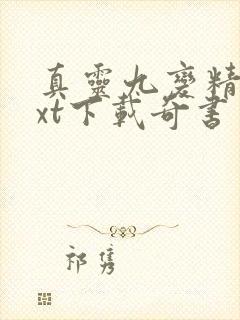 真靈九變精
xt下載奇書
祁雋